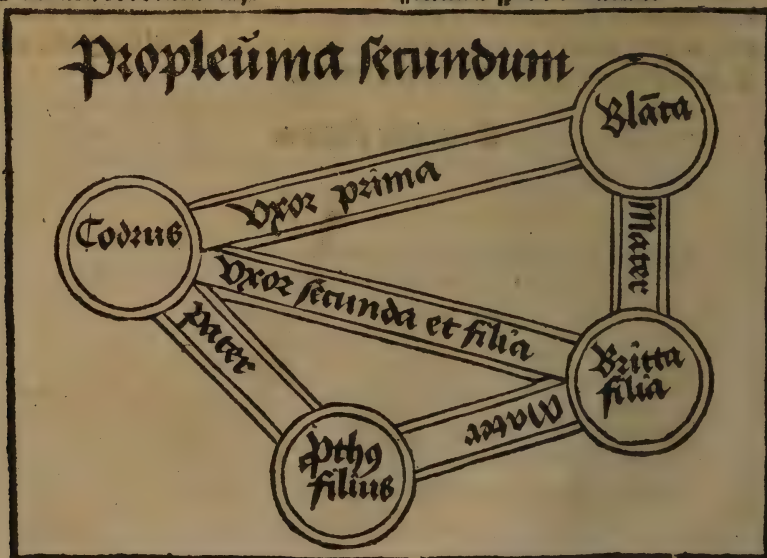 Propleūma secundum
Blāca
Uxor prima
Codrus
Mater
Uxor secunda et filia
Pater
Britta
filia
Mater
filius